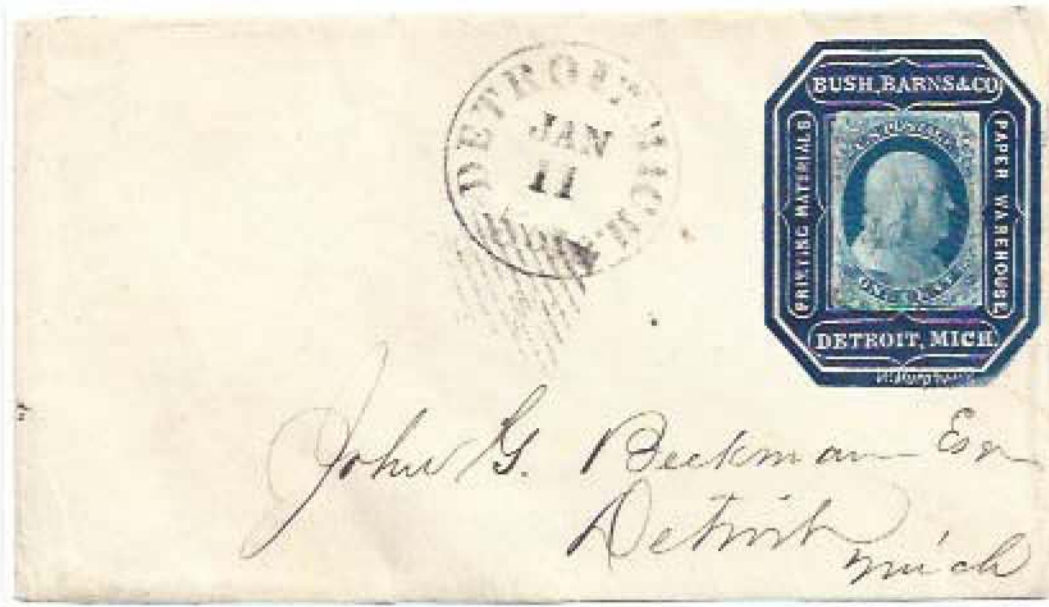 DETROIT MICH.
JAN
11
BUSH, BARNS & CO
PRINTING MATERIALS
PAPER WAREHOUSE
DETROIT, MICH.
John G. Beekman Esq
Detroit
Mich